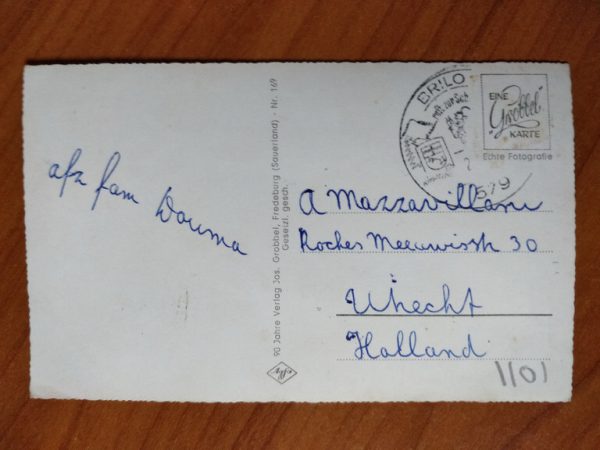 afz fam Douma
90 Jahre Verlag Jos. Grobbel, Fredeburg (Sauerland) - Nr. 169
Gesetzl. gesch.
BRILO
579
EINE
Grobbel
KARTE
Echte Fotografie
A Mazzavillani
Rochus Meeuwisstr 30
Utrecht
Holland
1101